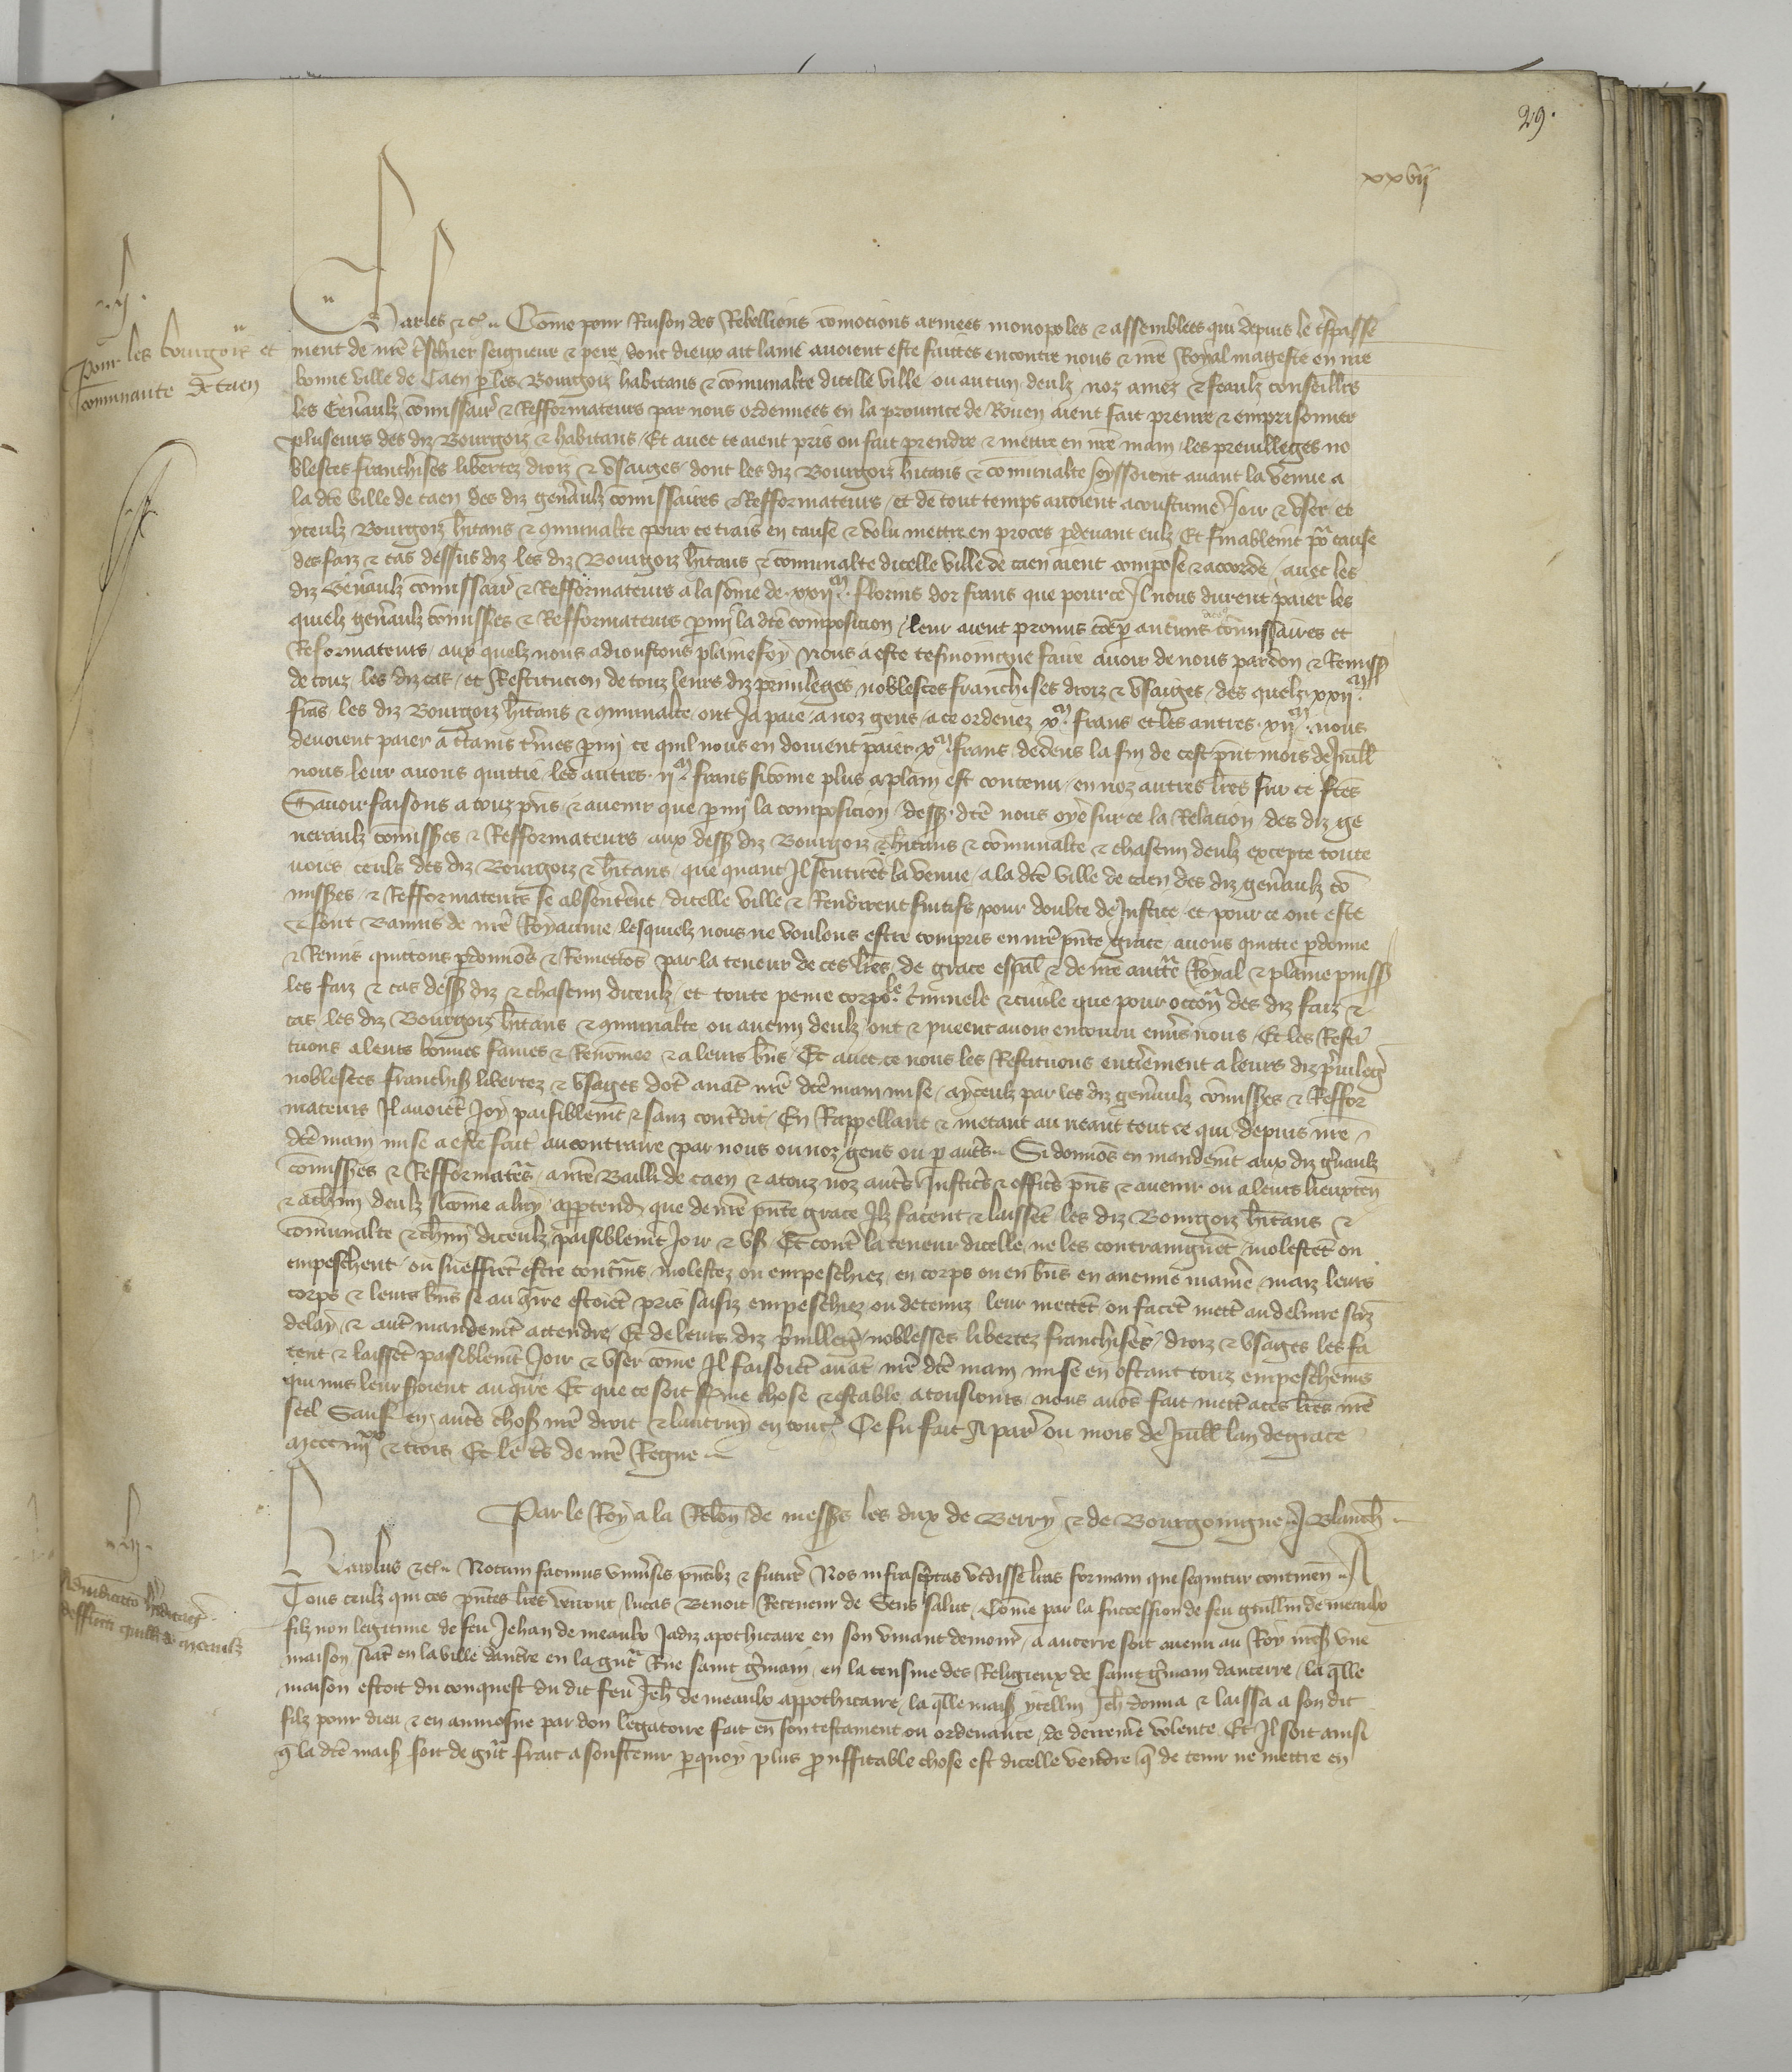 29.
xxvij
lj.
Pour les bourgois et
communaute de Caen
Charles etc. Come pour Raison des Rebellions comocions armees monopoles & assemblees qui depuis le trespasse
ment de nre treschier seigneur & pere, dont dieux ait lame avoient este faittes encontre nous & nre Royal mageste en nre
bonne ville de Caen p les Bourgoiz habitans & comunalte dicelle ville ou aucun deulz noz amez & feaulz conseilliers
les Genaulz comissair & Refformateurs par nous ordennees en la province de Rouen aient fait prenre & emprisonner
pluseurs des diz Bourgoiz & habitans, Et avec ce aient pris ou fait prendre & mettre en nre main, les previlleges no
blesces franchises libertez droiz & usauges, dont les diz Bourgoiz hitans & comunalte joyssoient avant la venue a
la dte ville de caen des diz genaulz comissaires & Refformateurs, et de tout temps avoient acoustume Joir & user, et
yceulz Bourgoiz hitans & comunalte pour ce trais en cause & volu mettre en proces pdevant eulz Et finablemt po cause
des faiz & cas dessus diz les diz Bourgoiz hitans & comunalte dicelle ville de caen aient compose & accorde, avec les
diz Genaulz comissair & Refformateurs a la some de xxij.m florins dor frans que pour ce Il nous durent paier les
quielz genaulz comisses & Refformateurs pmi la dte composicion, leur aient promis aucuns comissaires et
Reformateurs, aux quelz nous adioustons plaine foy Nous a este tesmoingne faire avoir de nous pardon & Remiss
de touz les diz cas, et Restitucion de touz leurs diz privileges noblesces franchises droiz & usaiges, des quelz xxij.m
frans les diz Bourgoiz hitans & comunalte, ont Ja paie, a noz gens, a ce ordenez x.m frans et les autres xij.m nous
devoient paier a ctains tmes pmi ce quil nous en doivent paier x.m frans, dedens la fin de cest pnt mois de Juill
nous leur avons quittie, les autres ij.m frans sicome plus a plain est contenu, en noz autres lres sur ce ftes
Savoir faisons a touz pns & avenir que pmi la composicion, dess dte nous oye sur ce la Relacion des diz ge
neraulz comisses & Refformateurs aux dess diz Bourgoiz & hitans & comunalte & chascun deulz excepte toute
voies ceuls des diz Bourgoiz & hitans, que quant Il sentirent la venue, a la dte ville de caen des diz genaulz co
misses, & Refformateurs se absentrent, dicelle ville & Rendirent fuitifs pour doubte de Justice, et pour ce ont este
& sont Bannis de nre Royaume, lesquielz nous ne voulons estre compris en nre pnte grace, avons quittie pdonne
& Remis quittons pdonnons & Remettons par la teneur de ces lres, de grace espal & de nre auttte Royal & plaine puiss
les faiz & cas dess diz & chascun diceulz, et toute peine corpole criminele & civile que pour occon des diz faiz &
cas, les diz Bourgoiz hitans & comunalte ou aucun deulz ont & pueent avoir encouru envs nous, Et les Resti
tuons a leurs bonnes fames & Renomee & a leurs bns, Et avec ce nous les Restituons entierement a leurs diz privileg
noblesces franchis libertez & usages dot avat nre dte main mise, a yceulz par les diz genaulz comisses & Reffor
mateurs Il avoiet Joy paisiblemt & sanz contdit, En Rappellant & metant au neant tout ce qui depuis nre
dte main mise a este fait au contraire par nous ou noz gens ou p autres. Si donnons en mandemt aux diz gnaulz
comisses & Refformateurs, a nre Bailli de caen & a touz noz autres Justices & offices pns & avenir ou a leurs lieuxten
& a chun deulz sicome a luy apptend que de nre pnte grace Ilz facent & laissent les diz Bourgoiz hitans &
comunalte & chun diceulz paisiblemt Joir & us, Et contre la teneur dicelle, ne les contraingnent, molestent ou
empeschent, ou sueffret estre contrains, molestez ou empeschiez, en corps ou en bns en aucune maniere, maiz leurs
corps & leurs bns se au contraire estoiet pris saisiz, empeschiez ou detenuz, leur mettet ou facet mettre au delivre sanz
delay & autre mandemt attendre, Et de leurs diz privilleg, noblesses libertez franchises, droiz & usages les fa
cent & laisset paisiblemt Joir & user come Il faisoiet avat nre dte main mise en ostant touz empeschemens
qui mis leur seroient au contraire Et que ce soit ferme chose & estable a tousiours, nous avons fait mettre a ces lres nre
seel Sauf en autres choses nre droit & lautruy en toutes Ce fu fait A Paris ou mois de Juill lan de grace
mil ccc iiijxx & trois Et le tiers de nre Regne.
Par le Roy a la Relon de messeigneurs les dux de Berry & de Bourgoingne. J Blanch
lij.
Admodiatio hereditatis
deffuncti Guillermi de meaulz
Karolus etc. Notum facimus univsis pntibz & futur Nos infrascptas vidisse lras formam que sequitur continen. A
Tous ceulz qui ces pntes lres verront, lucas Benoit, Receveur de Sens salut, Come par la succession de feu guillm de meaulx
filz non legitime de feu Jehan de meaulx Jadiz apothicaire en son vivant demour, a aucerre soit avenu au Roy nress une
maison seant en la ville daucerre en la gnt Rue saint gmain, en la censive des Religieux de saint gmain daucerre, la qlle
maison estoit du conquest du dit feu Jeh de meaulx appothicaire, la qlle mais ycellui Jeh donna & laissa a son dit
filz pour dieu & en aumosne par don legatoire fait en son testament ou ordenance, de derreniere volente, Et Il soit ainsi
q la dte mais soit de gnt frait a soustenir pquoy plus prouffitable chose est dicelle vendre, q de tenir ne mettre en